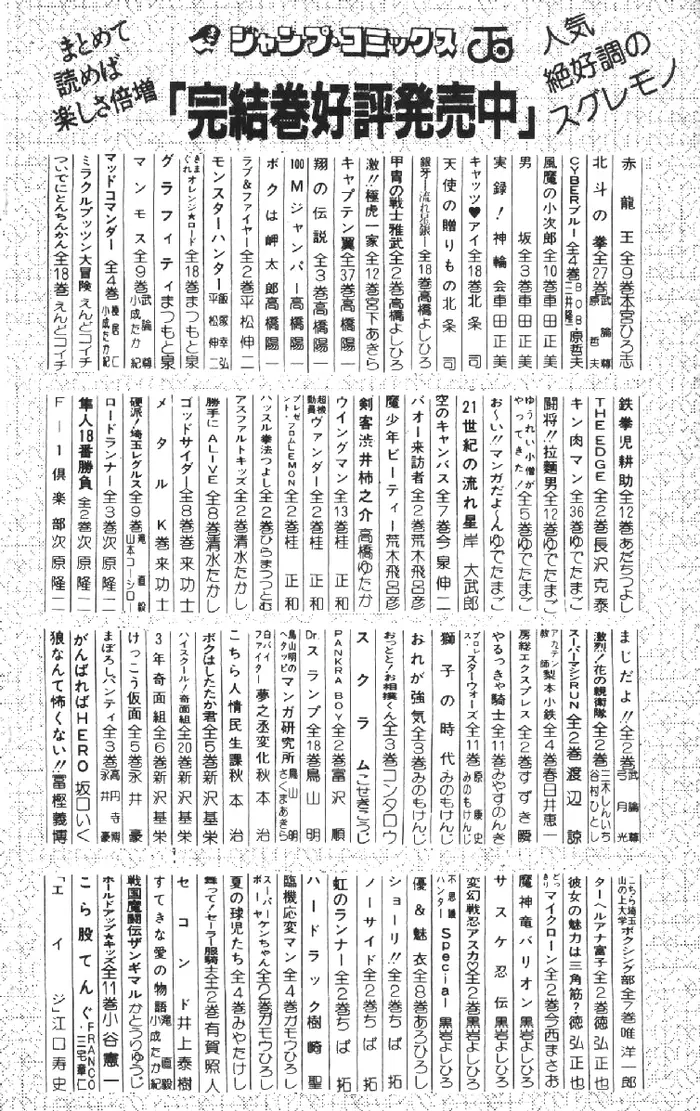 まとめて
読めば
楽しさ倍増
ジャンプ・コミックス
人気
絶好調の
スグレモノ
「完結巻好評発売中」
赤龍王 全9巻 本宮ひろ志
北斗の拳 全27巻 武論尊 原哲夫
CYBERブルー 全4巻 BOB・原哲夫 三井隆一
風魔の小次郎 全10巻 車田正美
男坂 全3巻 車田正美
実録!神輪会 車田正美
キャッツ♥アイ 全18巻 北条司
天使の贈りもの 北条司
銀牙―流れ星 銀― 全18巻 高橋よしひろ
甲冑の戦士雅武 全2巻 高橋よしひろ
激!!極虎一家 全12巻 宮下あきら
キャプテン翼 全37巻 高橋陽一
翔の伝説 全3巻 高橋陽一
100Mジャンパー 高橋陽一
ボクは岬太郎 高橋陽一
ラブ&ファイヤー 全2巻 平松伸二
モンスターハンター 飯塚幸弘 平松伸二
きまぐれオレンジ★ロード 全18巻 まつもと泉
グラフィティ まつもと泉
マンモス 全9巻 武論尊 小成たか紀
マッドコマンダー 全4巻 小成たか紀
ミラクルプッツン大冒険 えんどコイチ
ついでにとんちんかん 全18巻 えんどコイチ
鉄拳児耕助 全12巻 あだちつよし
THE EDGE 全2巻 長沢克泰
キン肉マン 全36巻 ゆでたまご
闘将!!拉麺男 全12巻 ゆでたまご
ゆうれい小僧がやってきた! 全5巻 ゆでたまご
お〜い!!マンガだよ〜ん ゆでたまご
21世紀の流れ星 岸大武郎
空のキャンバス 全7巻 今泉伸二
バオー来訪者 全2巻 荒木飛呂彦
魔少年ビーティー 荒木飛呂彦
剣客渋井柿之介 高橋ゆたか
ウイングマン 全13巻 桂正和
超機動員ヴァンダー 全2巻 桂正和
プレゼント・フロムLEMON 全2巻 桂正和
ハッスル拳法つよし 全2巻 ひらまつつとむ
アスファルトキッズ 全2巻 清水たかし
勝手にALIVE 全8巻 清水たかし
ゴッドサイダー 全8巻 巻来功士
メタルK 巻来功士
硬派!埼玉レグルス 全9巻 滝直毅 山本コーシロー
ロードランナー 全3巻 次原隆二
隼人18番勝負 全2巻 次原隆二
F―1倶楽部 次原隆二
まじだよ!! 全2巻 武論尊 弓月光
激烈!花の親衛隊 全2巻 三木しんいち 谷村ひとし
スーパーマシンRUN 全2巻 渡辺諒
アカテン教師梨本小鉄 全4巻 春日井恵一
房総エクスプレス 全2巻 すずき瞬
やるっきゃ騎士 全11巻 みやすのんき
プロレス・スターウォーズ 全11巻 原康史 みのもけんじ
獅子の時代 みのもけんじ
おれが強気 全3巻 みのもけんじ
おっとと!お相撲くん 全3巻 コンタロウ
スクラム こせきこうじ
PANKRA BOY 全2巻 富沢順
Dr.スランプ 全18巻 鳥山明
鳥山明のヘタッピマンガ研究所 鳥山明 さくまあきら
白バイファイター 夢之丞変化 秋本治
こちら人情民生課 秋本治
ボクはしたたか君 全5巻 新沢基栄
ハイスクール!奇面組 全20巻 新沢基栄
3年奇面組 全6巻 新沢基栄
けっこう仮面 全5巻 永井豪
まぼろしパンティ 全3巻 高円寺博 永井豪
がんばればHERO 坂口いく
狼なんて怖くない!! 冨樫義博
こちら埼玉山の上大学ボクシング部 全7巻 唯洋一郎
ターヘルアナ富子 全2巻 徳弘正也
彼女の魅力は三角筋? 徳弘正也
どっきりマイクローン 全2巻 今西まさお
魔神竜バリオン 黒岩よしひろ
サスケ忍伝 黒岩よしひろ
変幻戦忍アスカ 全2巻 黒岩よしひろ
不思議ハンターSpecial 黒岩よしひろ
優&魅衣 全8巻 あろひろし
ショーリ!! 全2巻 ちば拓
ノーサイド 全2巻 ちば拓
虹のランナー 全2巻 ちば拓
ハードラック 樹崎聖
臨機応変マン 全4巻 ガモウひろし
スーパーケンちゃんボーヤ 全2巻 ガモウひろし
夏の球児たち 全4巻 みやたけし
舞って!セーラー服騎士 全2巻 有賀照人
セコンド 井上泰樹
すてきな愛の物語 滝直毅 小成たか紀
戦国魔闘伝ザンギマル かとうゆうじ
ホールドアップ★キッズ 全11巻 小谷憲一
こら股てんぐ FRANCO 三宅章仁
「エイジ」 江口寿史